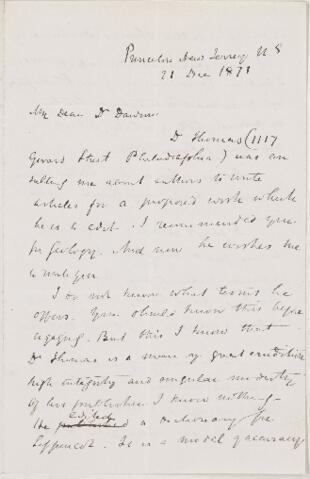 Princeton New Jersey U S
21 Dec 1871
My Dear Dr Dawson
Dr Thomas (1117
Girard Street Philadelphia) was con
sulting me about authors to write
articles for a proposed work which
he is to edit. I recommended you
for Geology. And now he wishes me
to write you.
I do not know what terms he
offers. You should know this before
engaging. But this I know that
Dr Thomas is a man of great erudition
high integrity and singular modesty
Of his publishers I know nothing -
He edited a dictionary for
Lippincot. It is a model of accuracy